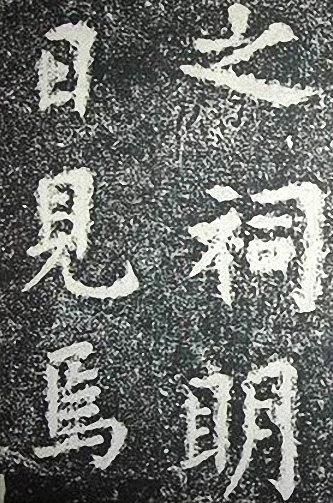 之祠明
日見焉